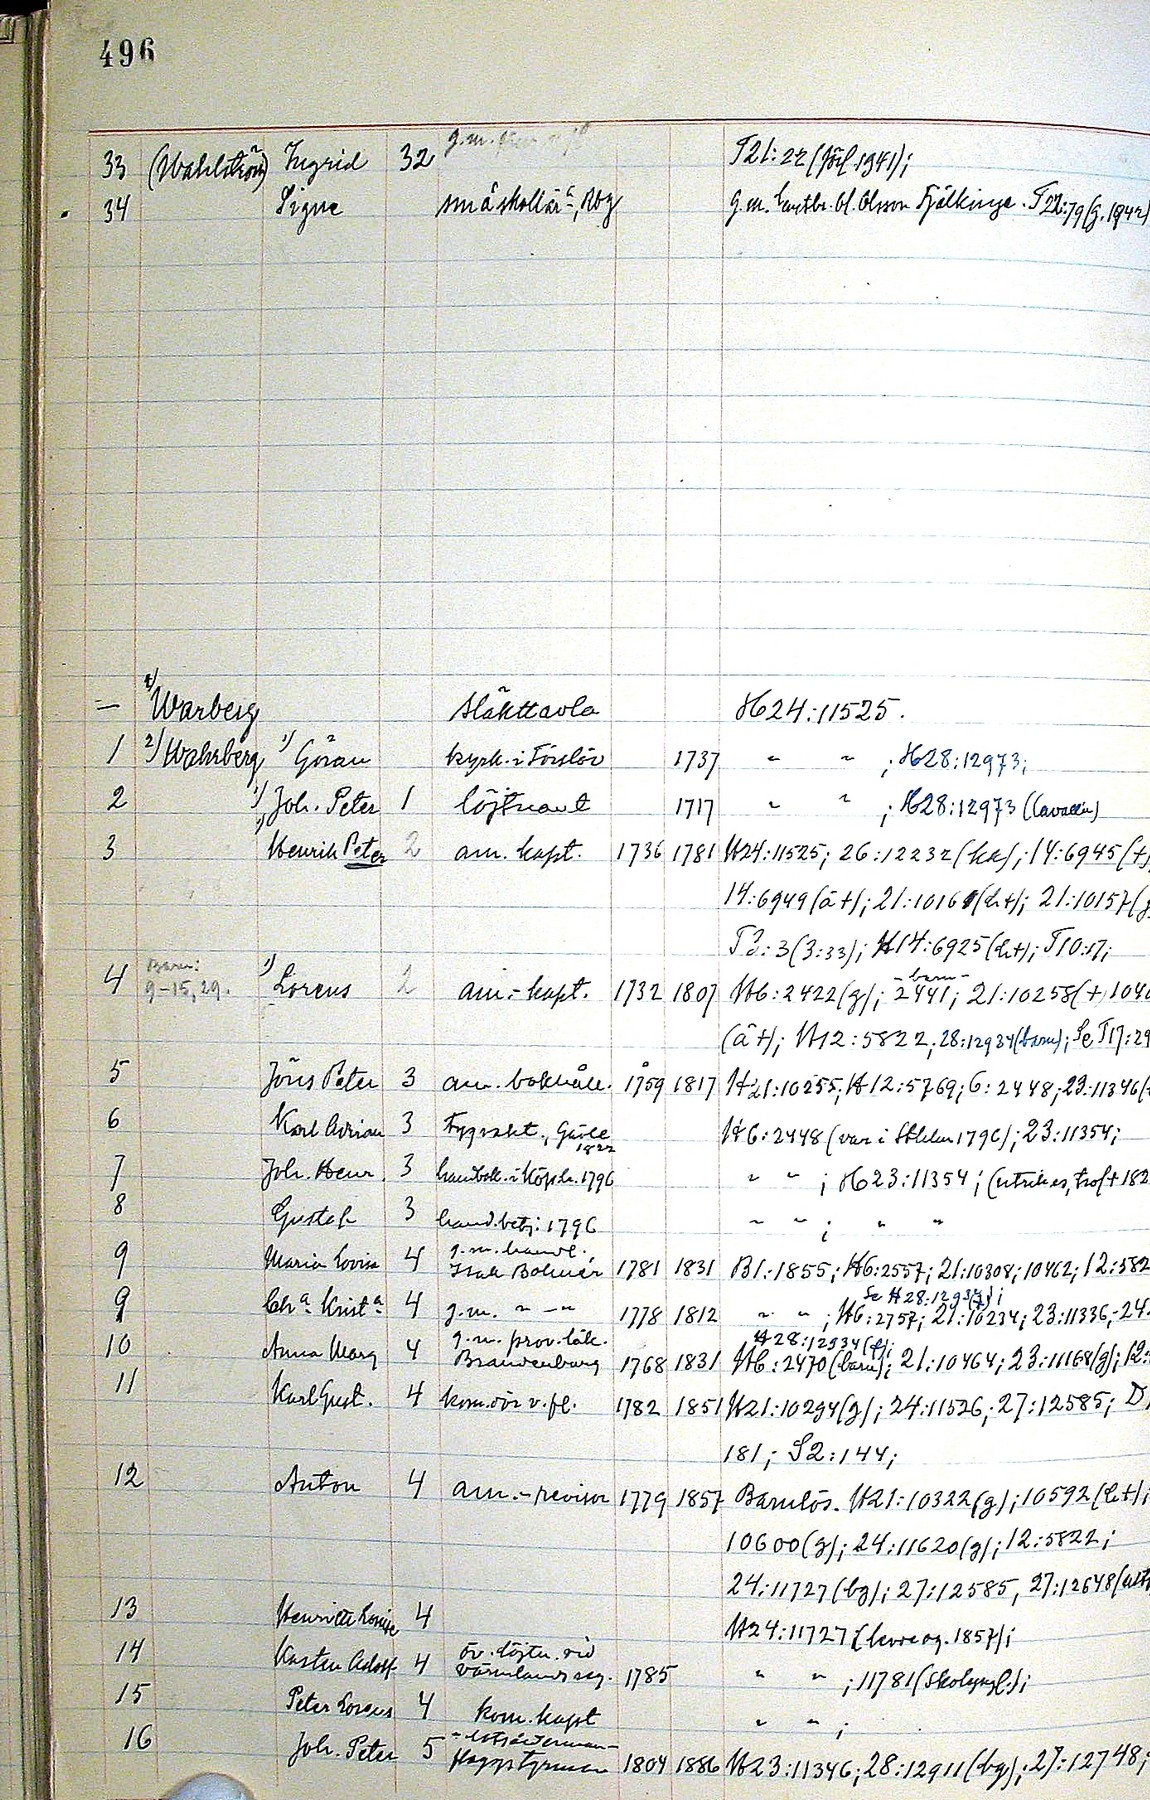 496
33 (Wahlström) Ingrid 32 g.m. T21:22 (förl. 1941);
34 Signe småskollär-a, Kbg g.m. Ol. Olsson Fjälkinge. T22:79 (g. 1942)
— 1) Warberg släkttavla H24:11525.
1 2) Wahrberg 1) Göran kyrk. i Förslöv 1737 " " ; H28:12973;
2 1) Joh. Peter 1 löjtnant 1717 " " ; H28:12973 (Cavallin)
3 Henrik Peter 2 am. kapt. 1736 1781 H24:11525; 26:12232 (ka); 14:6945 (+)
14:6949 (ä+); 21:10161 (ht); 21:10157
T3:3 (3:33); H14:6925 (ht); T10:17;
4 Barn: 9-15, 29. 1) Lorens 2 am.-kapt. 1732 1807 H6:2422 (g); -barn- 2441; 21:10258 (+)
(ä+); H12:5822; 28:12934 (barn); Se T17:29
5 Jöns Peter 3 am. bokhåll. 1759 1817 H21:10255; H12:5769; 6:2448; 23:11346
6 Karl Adrian 3 Tygvakt., Gävle 1822 H6:2448 (var i Sthlm 1796); 23:11354;
7 Joh. Henr. 3 handbok. i Köphn. 1796 " " ; H23:11354; (utrikes, trol. + 182
8 Gustaf 3 hand.betj. 1796 " " ; " "
9 Maria Lovisa 4 g.m. handl. Isak Bohmer 1781 1831 B1:1855; H6:2557; 21:10308; 10462; 12:582
9 Chr-a Krist-a 4 g.m. " — " 1778 1812 " " ; Se H28:12937; H6:2757; 21:10234; 23:11336; 24
10 Anna Marg 4 g.m. prov.läk. Brandenburg 1768 1831 H28:12934 (f); H6:2470 (barn); 21:10464; 23:11168 (g); 12:
11 Karl Gust. 4 kom.ör v. fl. 1782 1851 H21:10294 (g); 24:11526; 27:12585; D
181; S2:144;
12 Anton 4 am.-revisor 1779 1857 Barnlös. H21:10322 (g); 10592 (ht);
10600 (g); 24:11620 (g); 12:5822;
24:11727 (bg); 27:12585, 27:12648
13 Henriette Louise 4 H24:11727 (levde og. 1857);
14 Karsten Adolf 4 öv. löjtn. vid Värmlands reg. 1785 " " ; 11781 (skolyngl.);
15 Peter Lorens 4 kom. kapt " " ;
16 Joh. Peter 5 -lotsålderman- flaggstyrman 1804 1886 H23:11346; 28:12911 (bg); 27:12748;